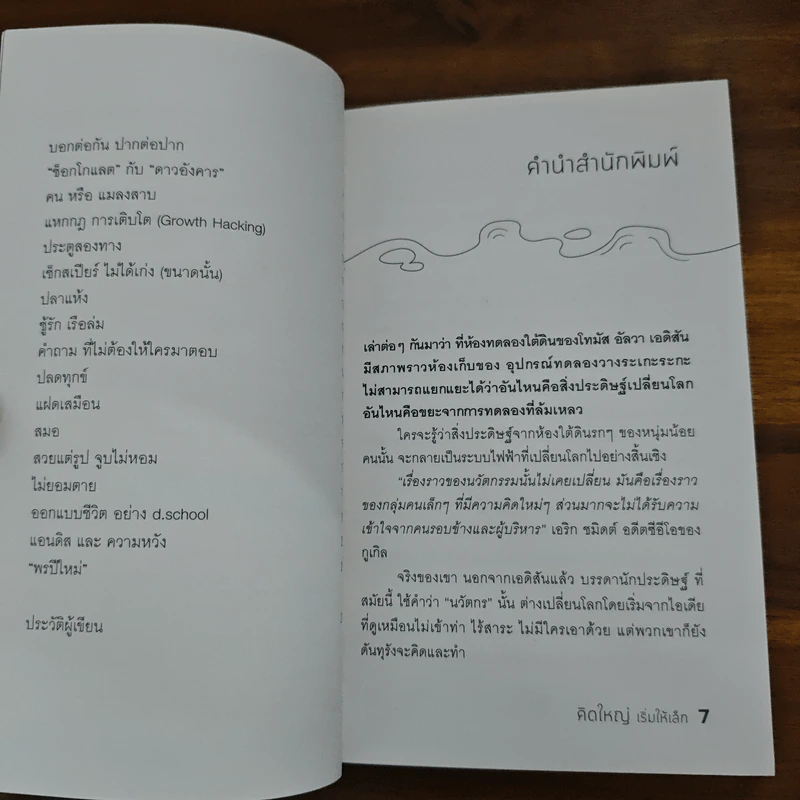 บอกต่อกัน ปากต่อปาก
"ช็อกโกแลต" กับ "ดาวอังคาร"
คน หรือ แมลงสาบ
แหกกฎ การเติบโต (Growth Hacking)
ประตูสองทาง
เช็กสเปียร์ ไม่ได้เก่ง (ขนาดนั้น)
ปลาแห้ง
ชู้รัก เรือล่ม
คำถาม ที่ไม่ต้องให้ใครมาตอบ
ปลดทุกข์
แฝดเสมือน
สมอ
สวยแต่รูป จูบไม่หอม
ไม่ยอมตาย
ออกแบบชีวิต อย่าง d.school
แอนดิส และ ความหวัง
"พรปีใหม่"
ประวัติผู้เขียน
คำนำสำนักพิมพ์
เล่าต่อๆ กันมาว่า ที่ห้องทดลองใต้ดินของโทมัส อัลวา เอดิสัน
มีสภาพราวห้องเก็บของ อุปกรณ์ทดลองวางระเกะระกะ
ไม่สามารถแยกแยะได้ว่าอันไหนคือสิ่งประดิษฐ์เปลี่ยนโลก
อันไหนคือขยะจากการทดลองที่ล้มเหลว
ใครจะรู้ว่าสิ่งประดิษฐ์จากห้องใต้ดินรกๆ ของหนุ่มน้อย
คนนั้น จะกลายเป็นระบบไฟฟ้าที่เปลี่ยนโลกไปอย่างสิ้นเชิง
"เรื่องราวของนวัตกรรมนั้นไม่เคยเปลี่ยน มันคือเรื่องราว
ของกลุ่มคนเล็กๆ ที่มีความคิดใหม่ๆ ส่วนมากจะไม่ได้รับความ
เข้าใจจากคนรอบข้างและผู้บริหาร" เอริก ชมิดต์ อดีตซีอีโอของ
กูเกิล
จริงของเขา นอกจากเอดิสันแล้ว บรรดานักประดิษฐ์ ที่
สมัยนี้ ใช้คำว่า "นวัตกร" นั้น ต่างเปลี่ยนโลกโดยเริ่มจากไอเดีย
ที่ดูเหมือนไม่เข้าท่า ไร้สาระ ไม่มีใครเอาด้วย แต่พวกเขาก็ยัง
ดันทุรังจะคิดและทำ
คิดใหญ่ เริ่มให้เล็ก 7